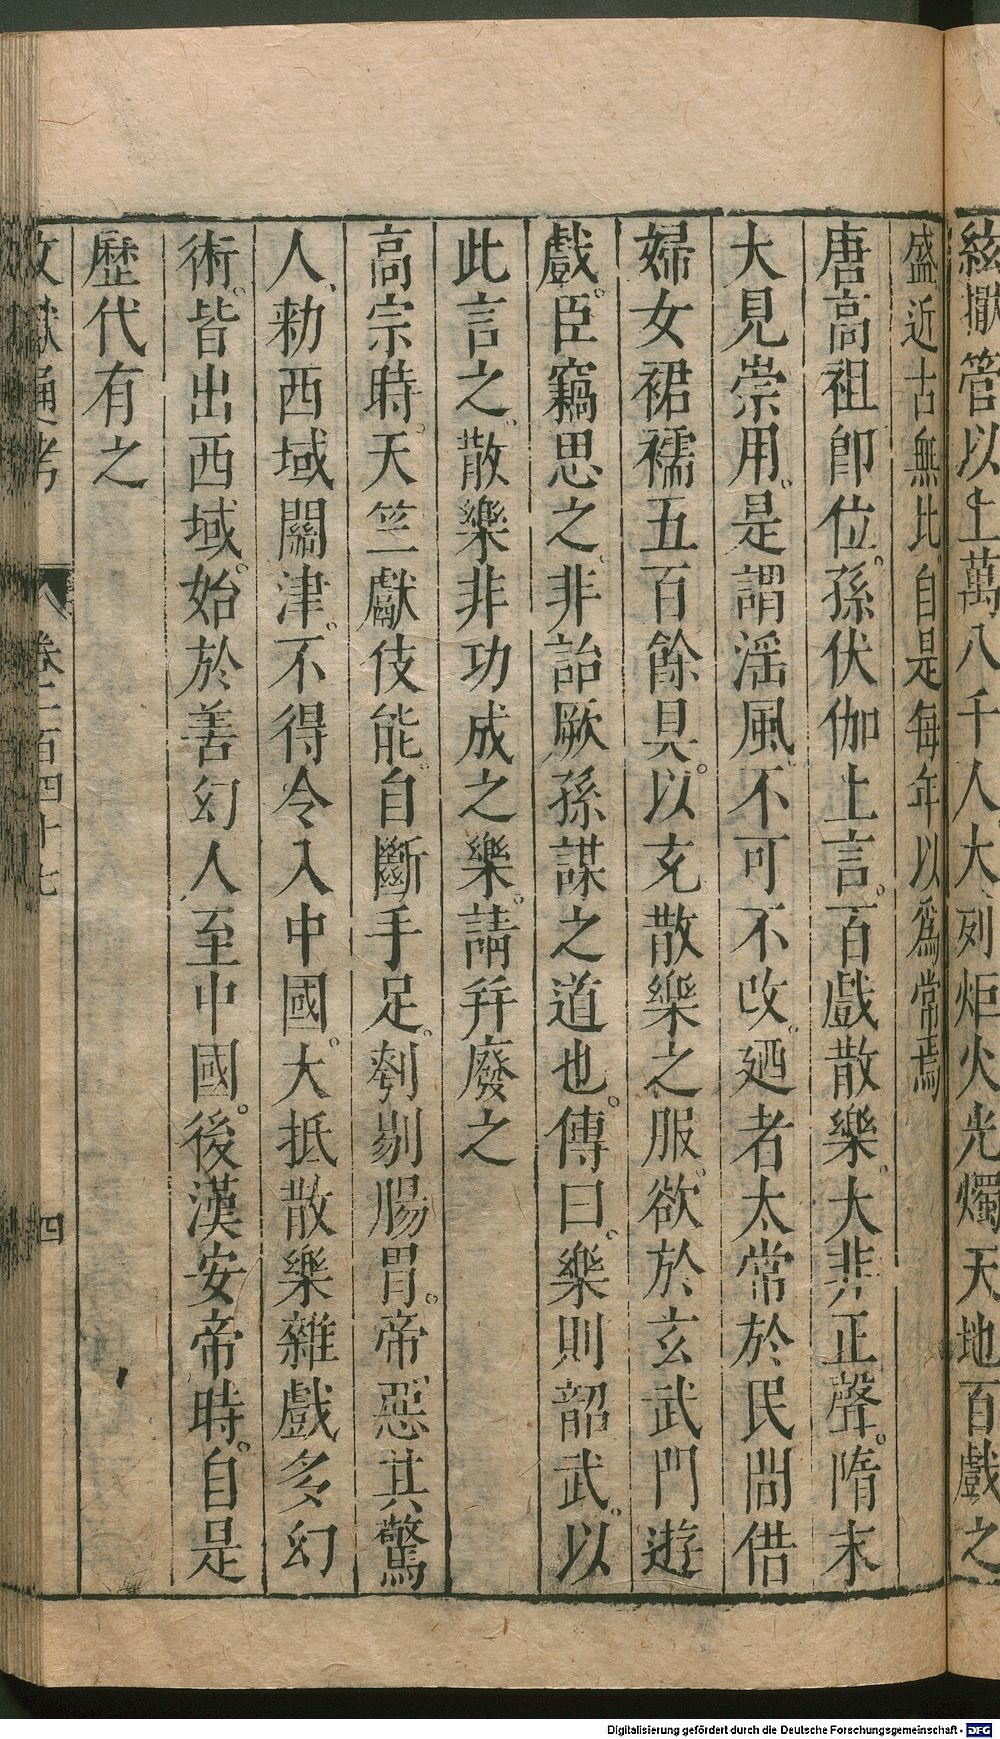 絃擫管以上萬八千人大列炬火光燭天地百戲之
盛近古無比自是每年以爲常焉
唐高祖即位。孫伏伽上言。百戲散樂。大非正聲。隋末
大見崇用。是謂淫風。不可不改。廼者太常於民間借
婦女裙襦五百餘具。以充散樂之服。欲於玄武門遊
戲。臣竊思之。非詒厥孫謀之道也。傳曰。樂則韶武。以
此言之。散樂非功成之樂。請并廢之
高宗時。天竺獻伎能。自斷手足。刳剔腸胃。帝惡其驚
人、勑西域關津。不得令入中國。大抵散樂雜戲多幻
術。皆出西域。始於善幻人至中國。後漢安帝時。自是
歷代有之
文獻通考 卷二百四十七 四
Digitalisierung gefördert durch die Deutsche Forschungsgemeinschaft - DFG